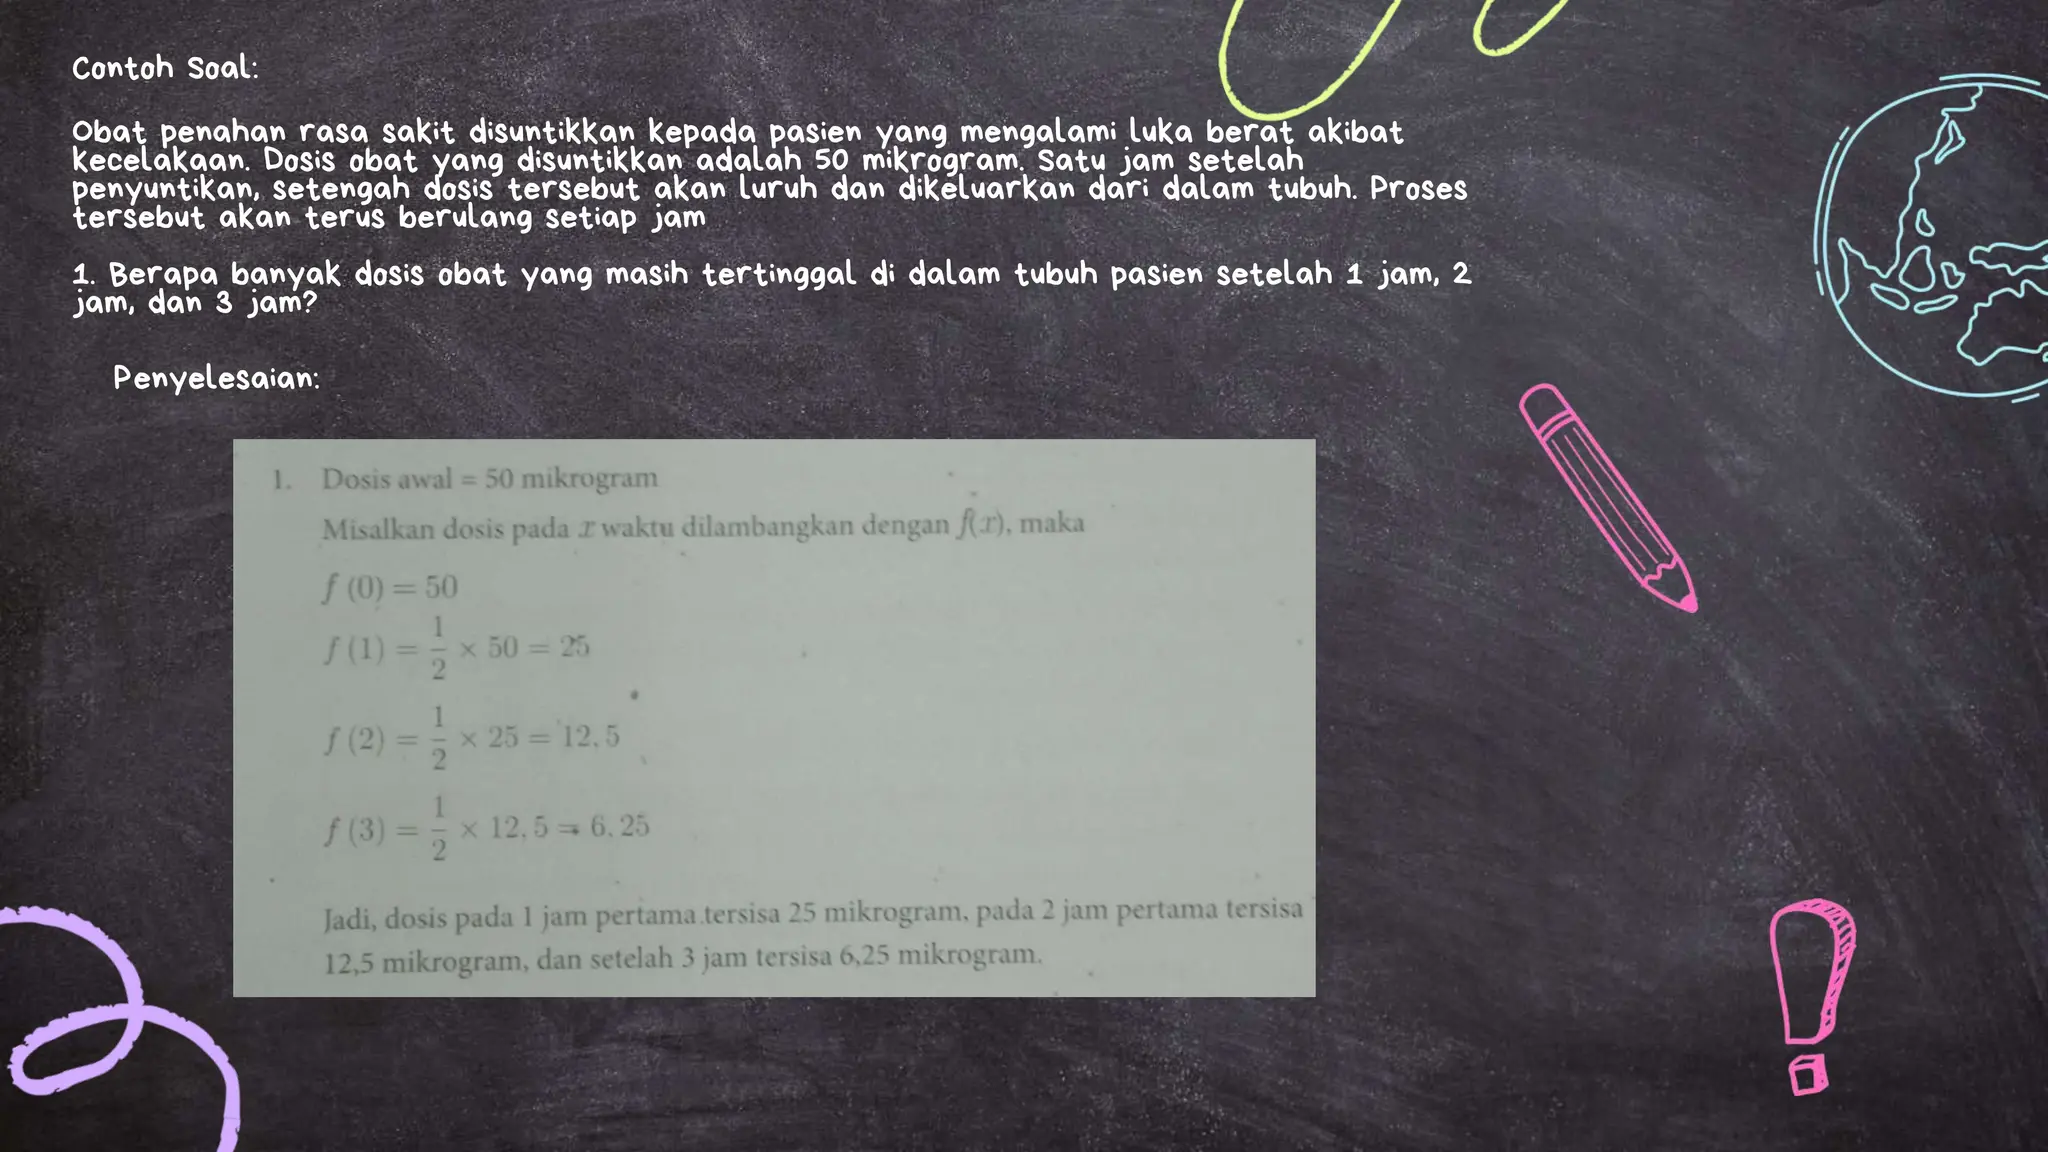 Contoh Soal:
Obat penahan rasa sakit disuntikkan kepada pasien yang mengalami luka berat akibat
kecelakaan. Dosis obat yang disuntikkan adalah 50 mikrogram. Satu jam setelah
penyuntikan, setengah dosis tersebut akan luruh dan dikeluarkan dari dalam tubuh. Proses
tersebut akan terus berulang setiap jam
1. Berapa banyak dosis obat yang masih tertinggal di dalam tubuh pasien setelah 1 jam, 2
jam, dan 3 jam?
Penyelesaian:
1. Dosis awal = 50 mikrogram
Misalkan dosis pada x waktu dilambangkan dengan f(x), maka
f (0) = 50
f (1) = 1/2 × 50 = 25
f (2) = 1/2 × 25 = 12, 5
f (3) = 1/2 × 12, 5 = 6, 25
Jadi, dosis pada 1 jam pertama tersisa 25 mikrogram, pada 2 jam pertama tersisa
12,5 mikrogram, dan setelah 3 jam tersisa 6,25 mikrogram.